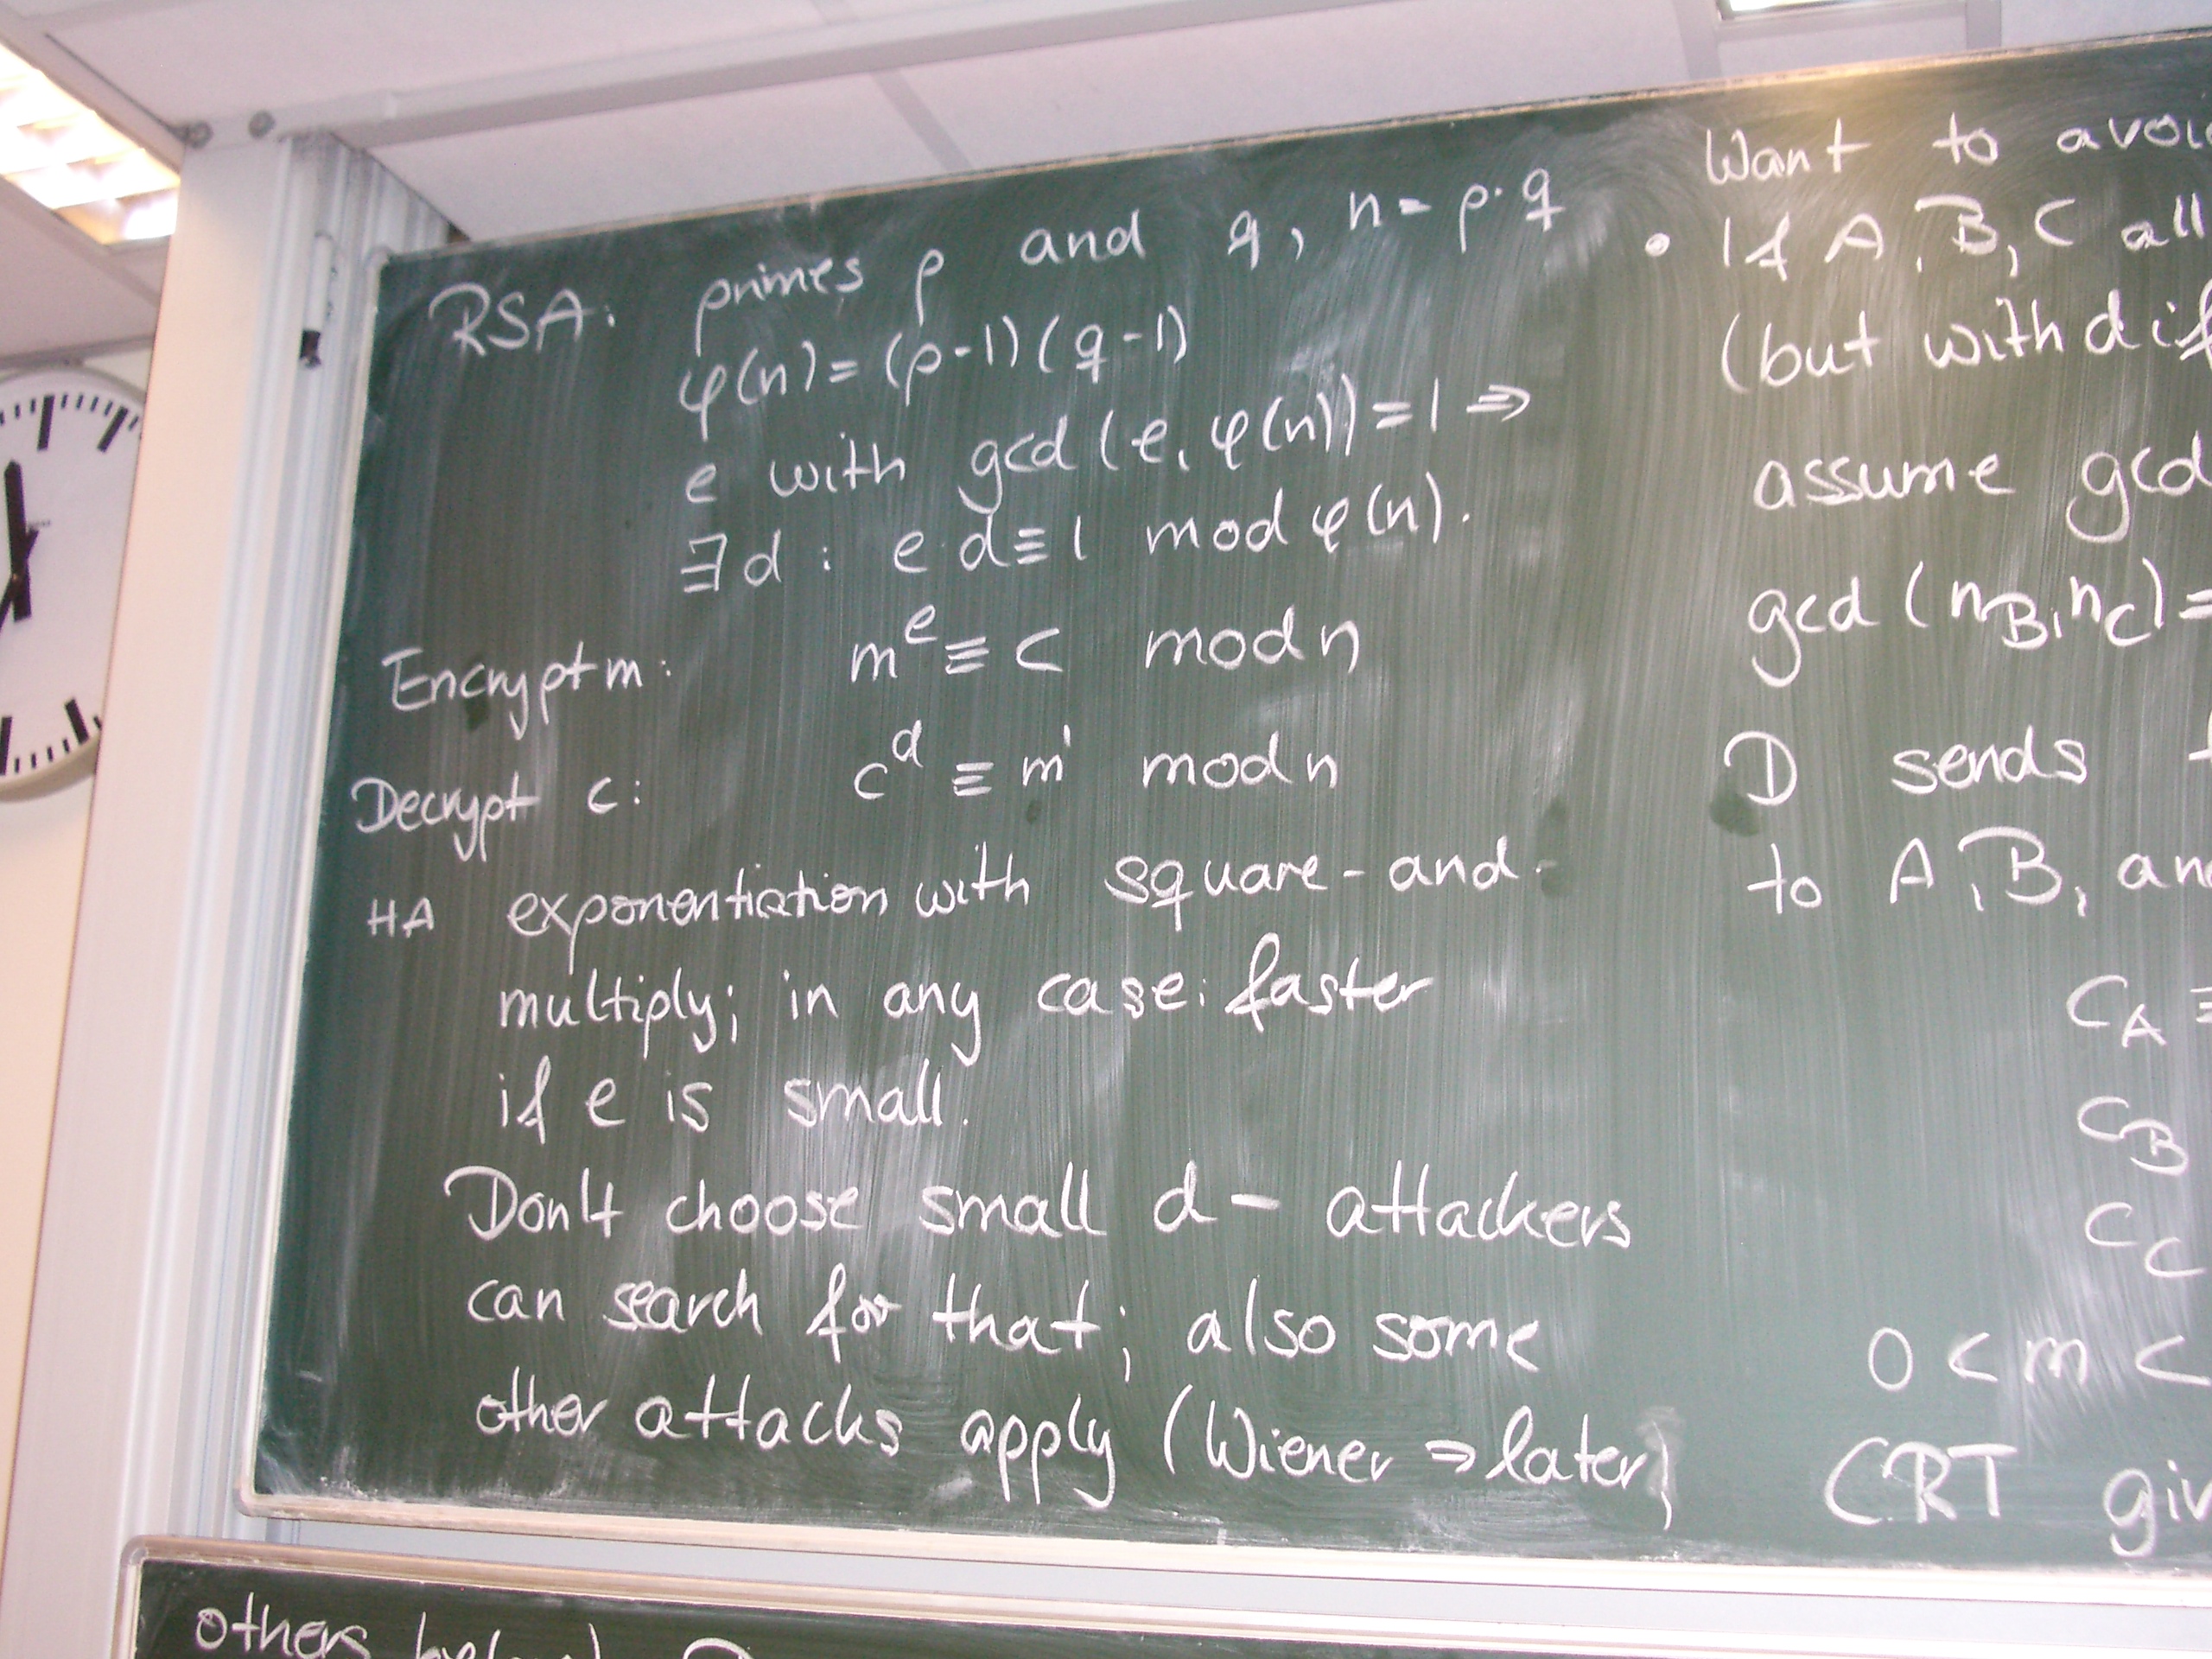 RSA: primes p and q, n = p·q
φ(n) = (p-1)(q-1)
e with gcd(e, φ(n)) = 1 ⇒
∃ d : e·d ≡ 1 mod φ(n).
Encrypt m: m^e ≡ c mod n
Decrypt c: c^d ≡ m' mod n
HA exponentiation with square-and-
multiply; in any case: faster
if e is small.
Don't choose small d - attackers
can search for that; also some
other attacks apply (Wiener ⇒ later)
Want to avoi
• If A, B, C all
(but with dif
assume gcd
gcd (n_B, n_C) =
D sends
to A, B, an
C_A ≡
C_B
C_C
0 < m <
CRT giv
others